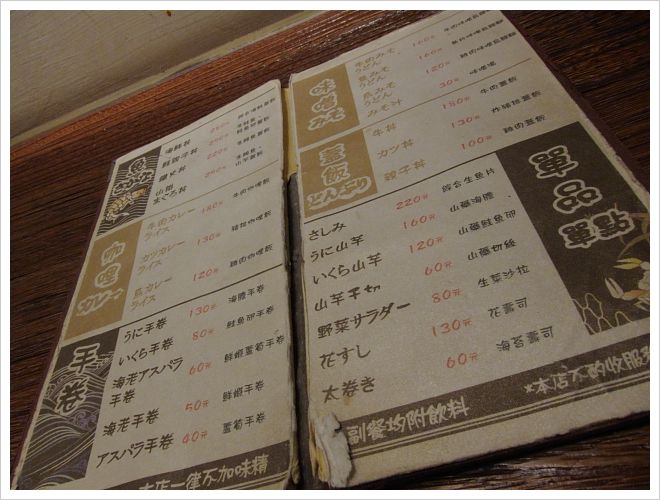 海鮮丼
親子丼
山掛
まぐろ丼
咖哩
カレー
牛肉カレー
ライス
180元
牛肉咖哩飯
カツカレー
ライス
130元
豬排咖哩飯
鳥カレー
ライス
120元
雞肉咖哩飯
手卷
うに手卷
130元
いくら手卷
80元
海老アスパラ
手卷
60元
海老手卷
50元
アスパラ手卷
40元
本店一律不加味精
味噌
みそ
牛肉みそ
うどん
160元
魚みそ
うどん
160元
鳥みそ
うどん
120元
みそ汁
30元
味噌湯
蓋飯
どんぶり
牛丼
180元
牛肉蓋飯
カツ丼
130元
炸豬排蓋飯
親子丼
100元
雞肉蓋飯
單品菜單
さしみ
220元
綜合生魚片
うに山芋
160元
山藥海膽
いくら山芋
120元
山藥鮭魚卵
山芋千切
60元
山藥切絲
野菜サラダー
80元
生菜沙拉
花すし
130元
花壽司
太巻き
60元
副餐均附飲料
*本店不酌收服務